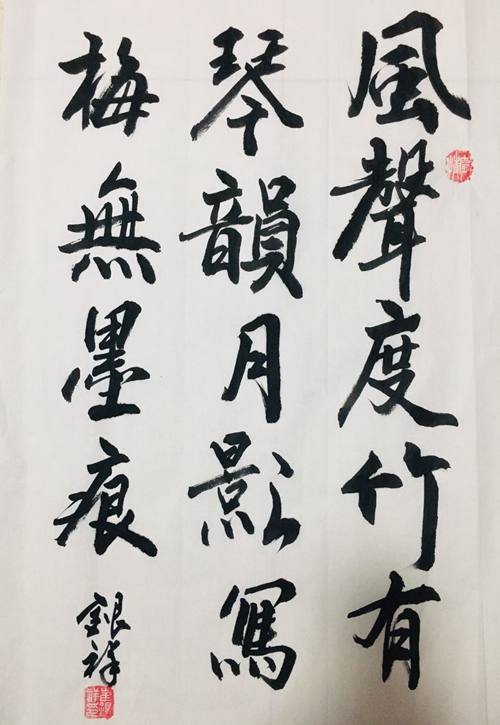 風聲度竹有
琴韻月影寫
梅無墨痕
銀祥